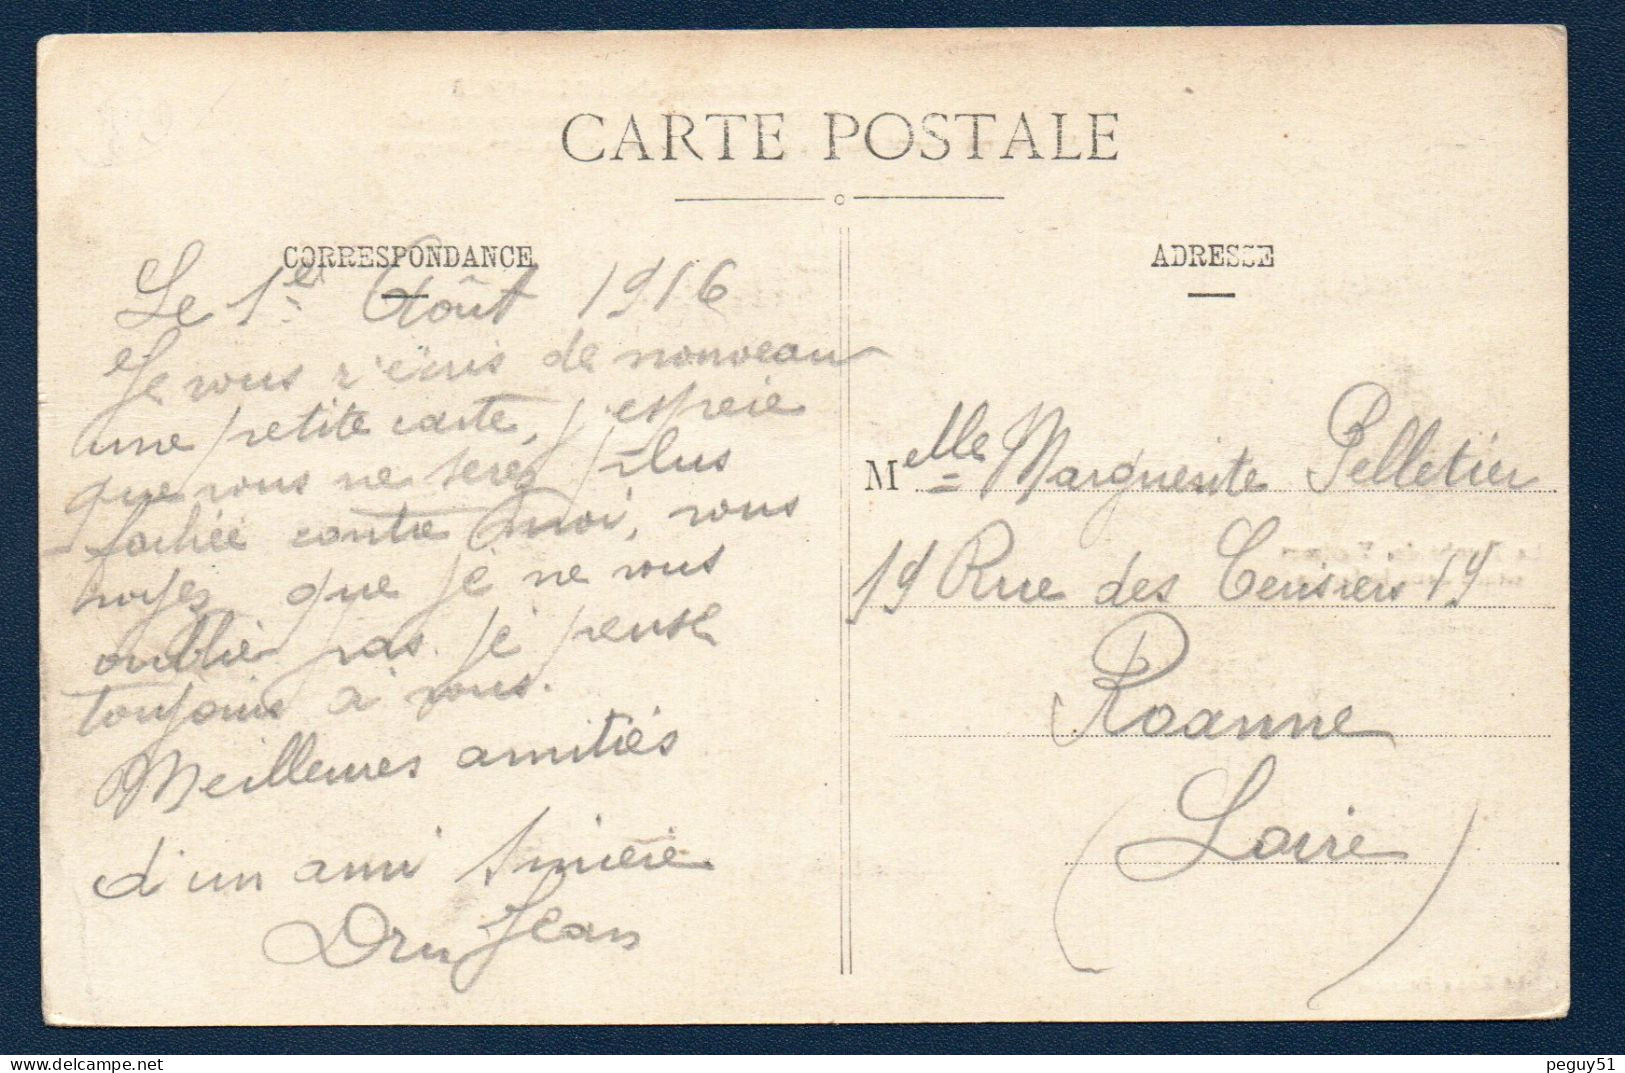 CARTE POSTALE
CORRESPONDANCE
Le 1er Août 1916
Je vous r'écris de nouveau
une petite carte, j'espère
que vous ne serez plus
fachée contre moi, vous
voyez que je ne vous
oublie pas je pense
toujours à vous.
Meilleures amitiés
d'un ami sincère
Dru Jean
ADRESSE
Melle Marguerite Pelletier
19 Rue des Cerisiers 19
Roanne
(Loire)
peguy51